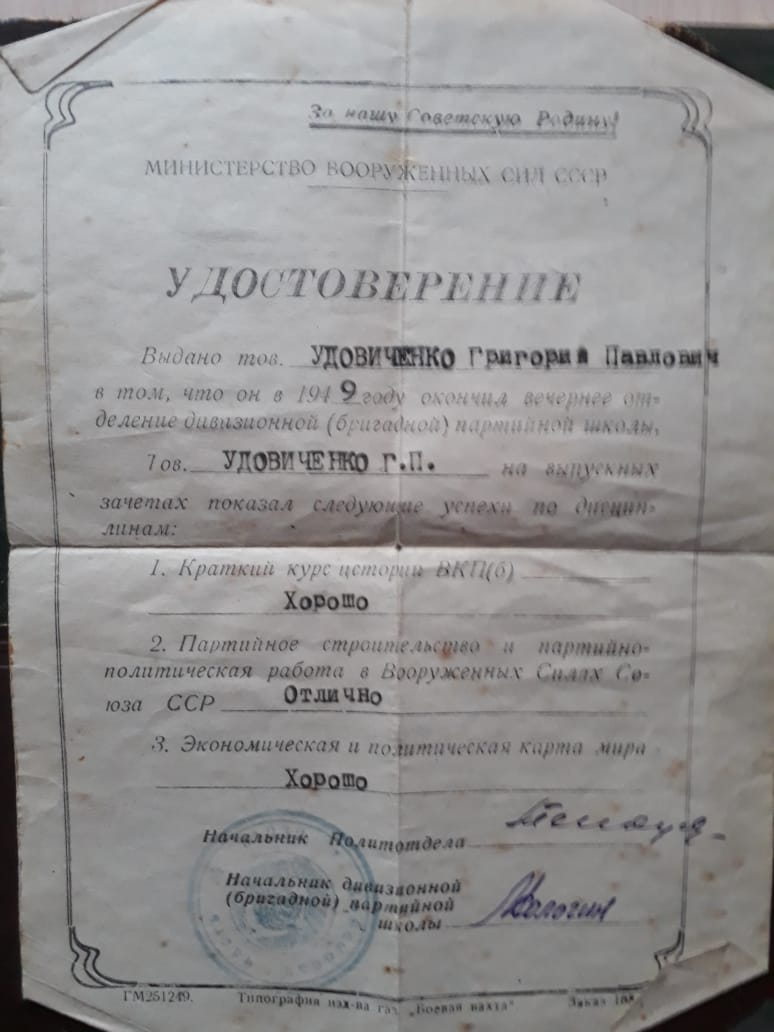 За нашу Советскую Родину!
МИНИСТЕРСТВО ВООРУЖЕННЫХ СИЛ СССР
УДОСТОВЕРЕНИЕ
Выдано тов. УДОВИЧЕНКО Григорий Павлович
в том, что он в 1949 году окончил вечернее от-
деление дивизионной (бригадной) партийной школы,
Тов. УДОВИЧЕНКО Г.П. на выпускных
зачетах показал следующие успехи по дисцип-
линам:
1. Краткий курс истории ВКП(б)
Хорошо
2. Партийное строительство и партийно-
политическая работа в Вооруженных Силах Со-
юза ССР Отлично
3. Экономическая и политическая карта мира
Хорошо
Начальник Политотдела
Начальник дивизионной
(бригадной) партийной
школы
ГМ251249. Типография изд-ва газ. „Боевая вахта" Заказ